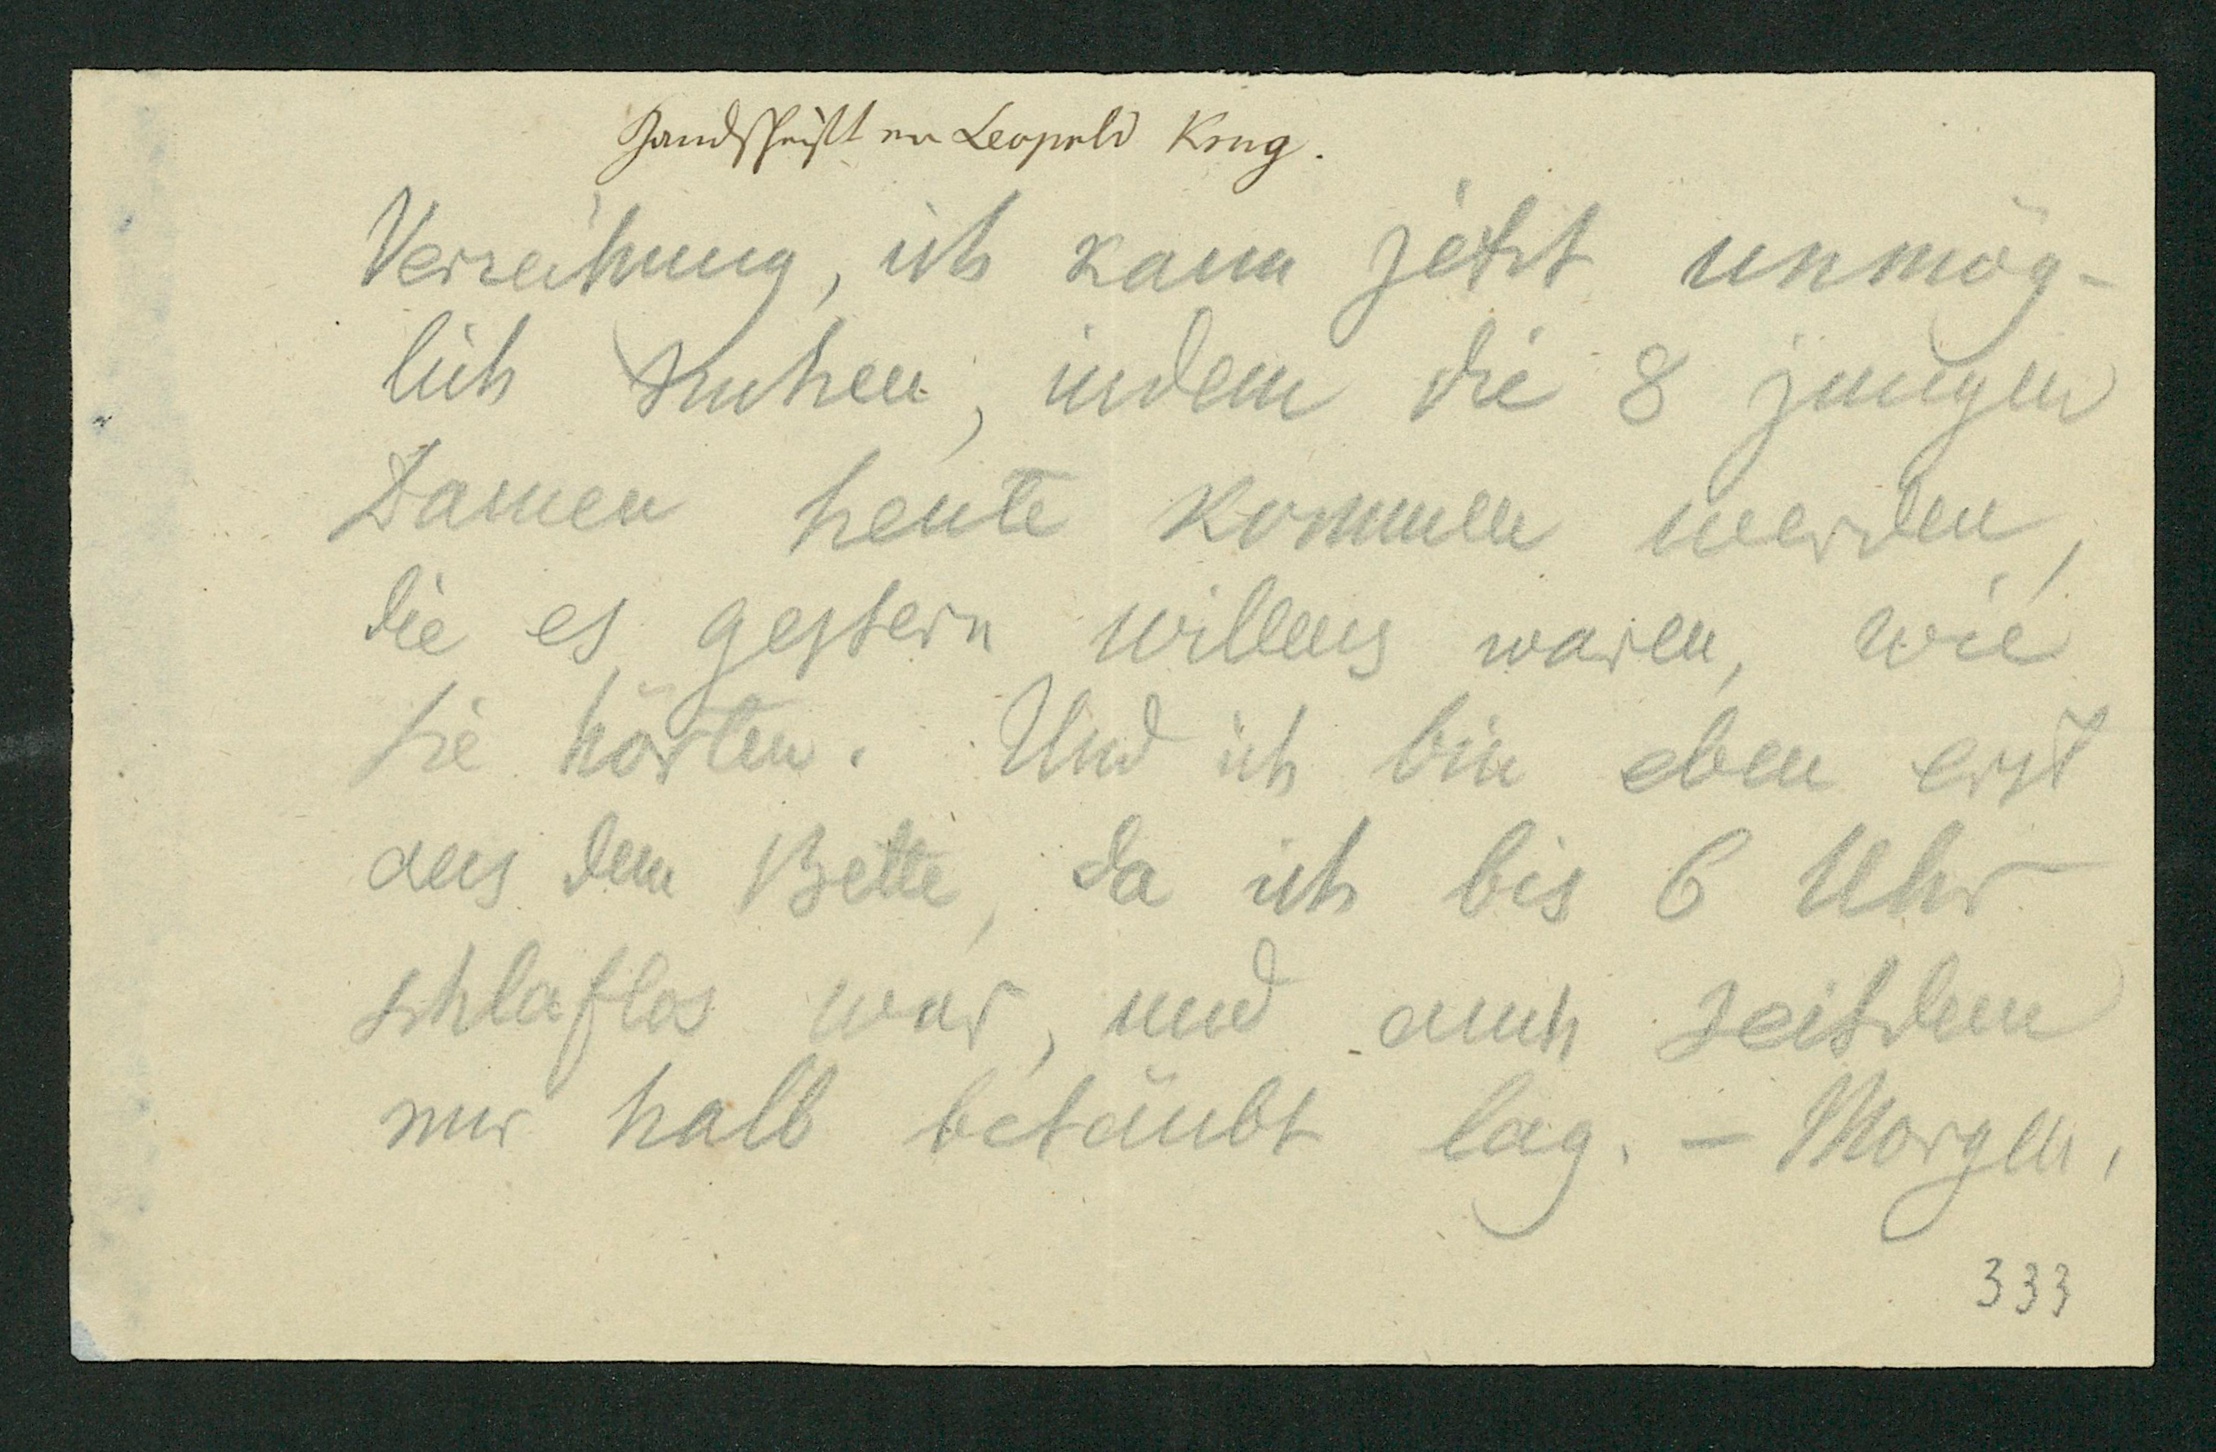 Handschrift von Leopold Krug.
Verzeihung, ich kann jetzt unmög-
lich suchen, indem die 8 jungen
Damen heute kommen werden,
die es gestern willens waren, wie
sie hörten. Und ich bin eben erst
aus dem Bette, da ich bis 6 Uhr
schlaflos war, und auch seitdem
nur halb betäubt lag. – Morgen,
333